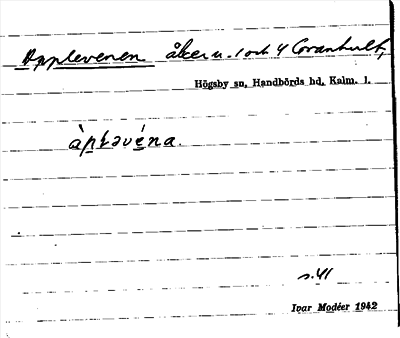 Applevenen åker u. 1 och 4 Granhult,
Högsby sn, Handbörds hd, Kalm. l.
àpləvéna.
s. 41
Ivar Modéer 1942